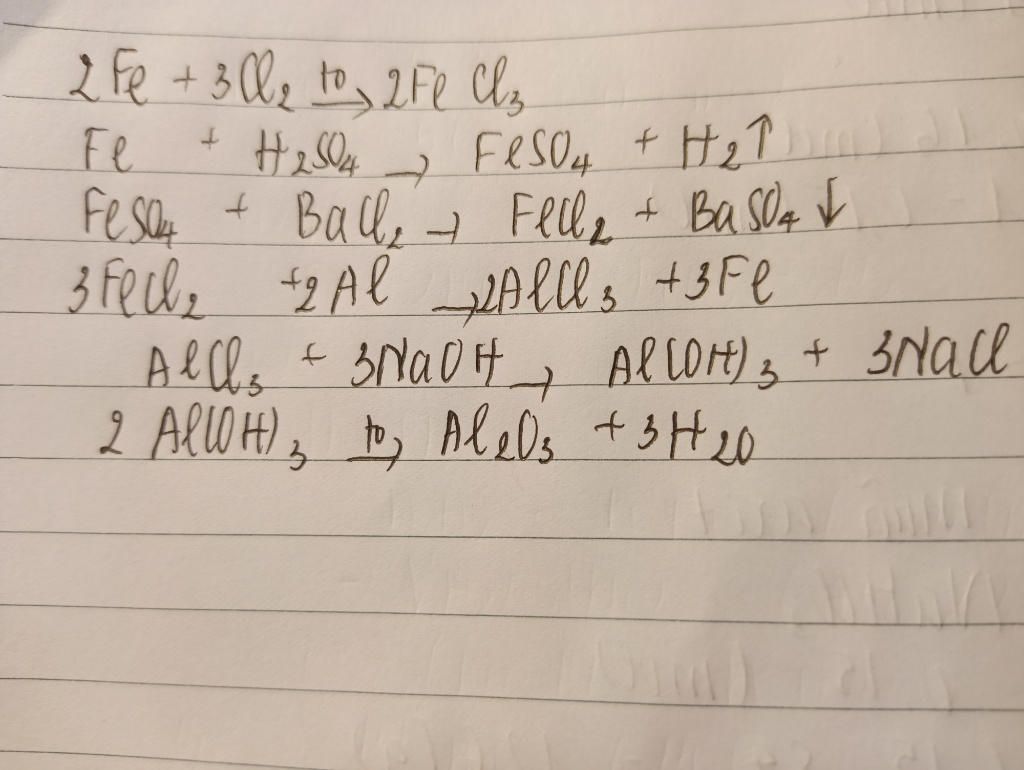 2Fe + 3Cl₂ →(to) 2FeCl₃
Fe + H₂SO₄ → FeSO₄ + H₂↑
FeSO₄ + BaCl₂ → FeCl₂ + BaSO₄↓
3FeCl₂ + 2Al → 2AlCl₃ + 3Fe
AlCl₃ + 3NaOH → Al(OH)₃ + 3NaCl
2Al(OH)₃ →(to) Al₂O₃ + 3H₂O